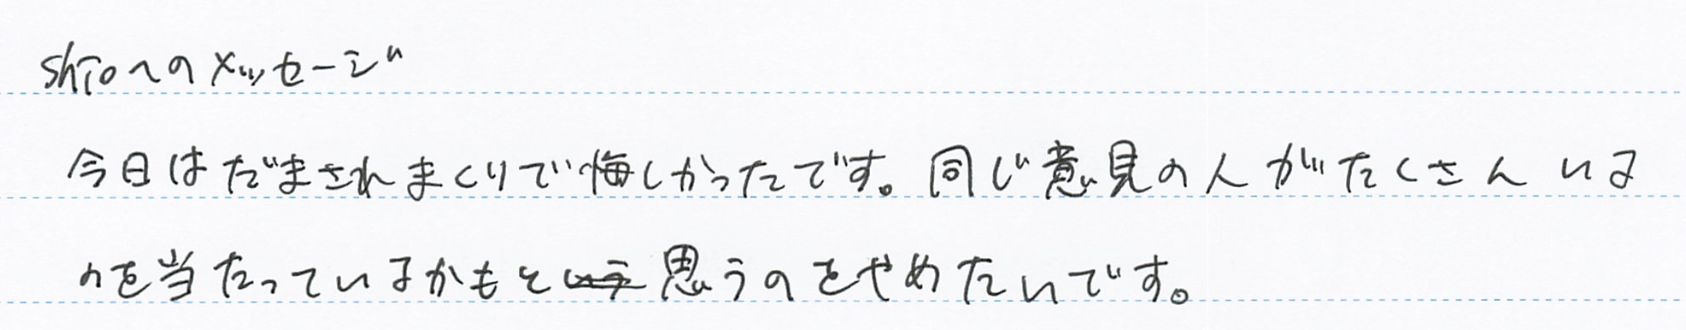 shioへのメッセージ
今日はだまされまくりで悔しかったです。同じ意見の人がたくさんいる
のを当たっているかもと思うのをやめたいです。